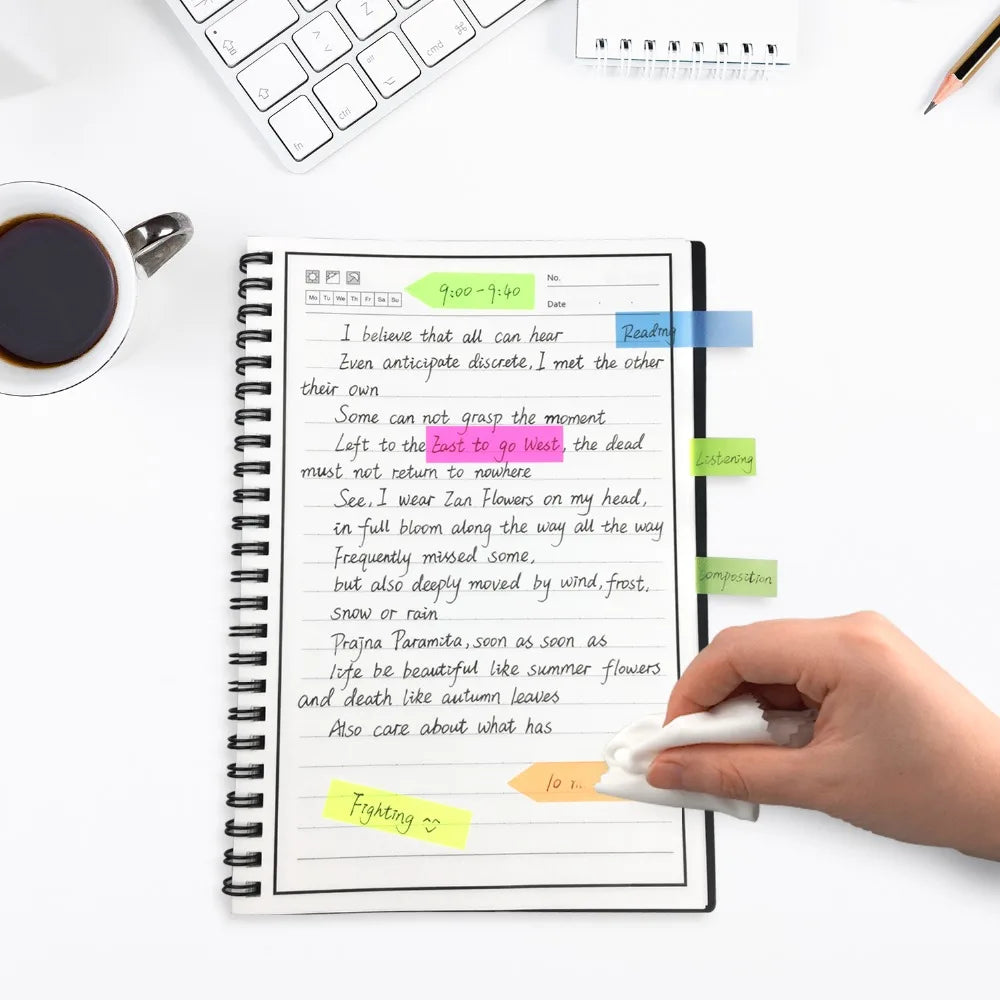 Z
alt
cmd
⌘
⌥
ctrl
fn
No.
Mo Tu We Th Fr Sa Su
9:00-9:40
Date
Reading
I believe that all can hear
Even anticipate discrete, I met the other
their own
Some can not grasp the moment
Left to the East to go West, the dead
must not return to nowhere
Listening
See, I wear Zan Flowers on my head,
in full bloom along the way all the way
Frequently missed some,
but also deeply moved by wind, frost,
Composition
snow or rain
Prajna Paramita, soon as soon as
life be beautiful like summer flowers
and death like autumn leaves
Also care about what has
10
Fighting